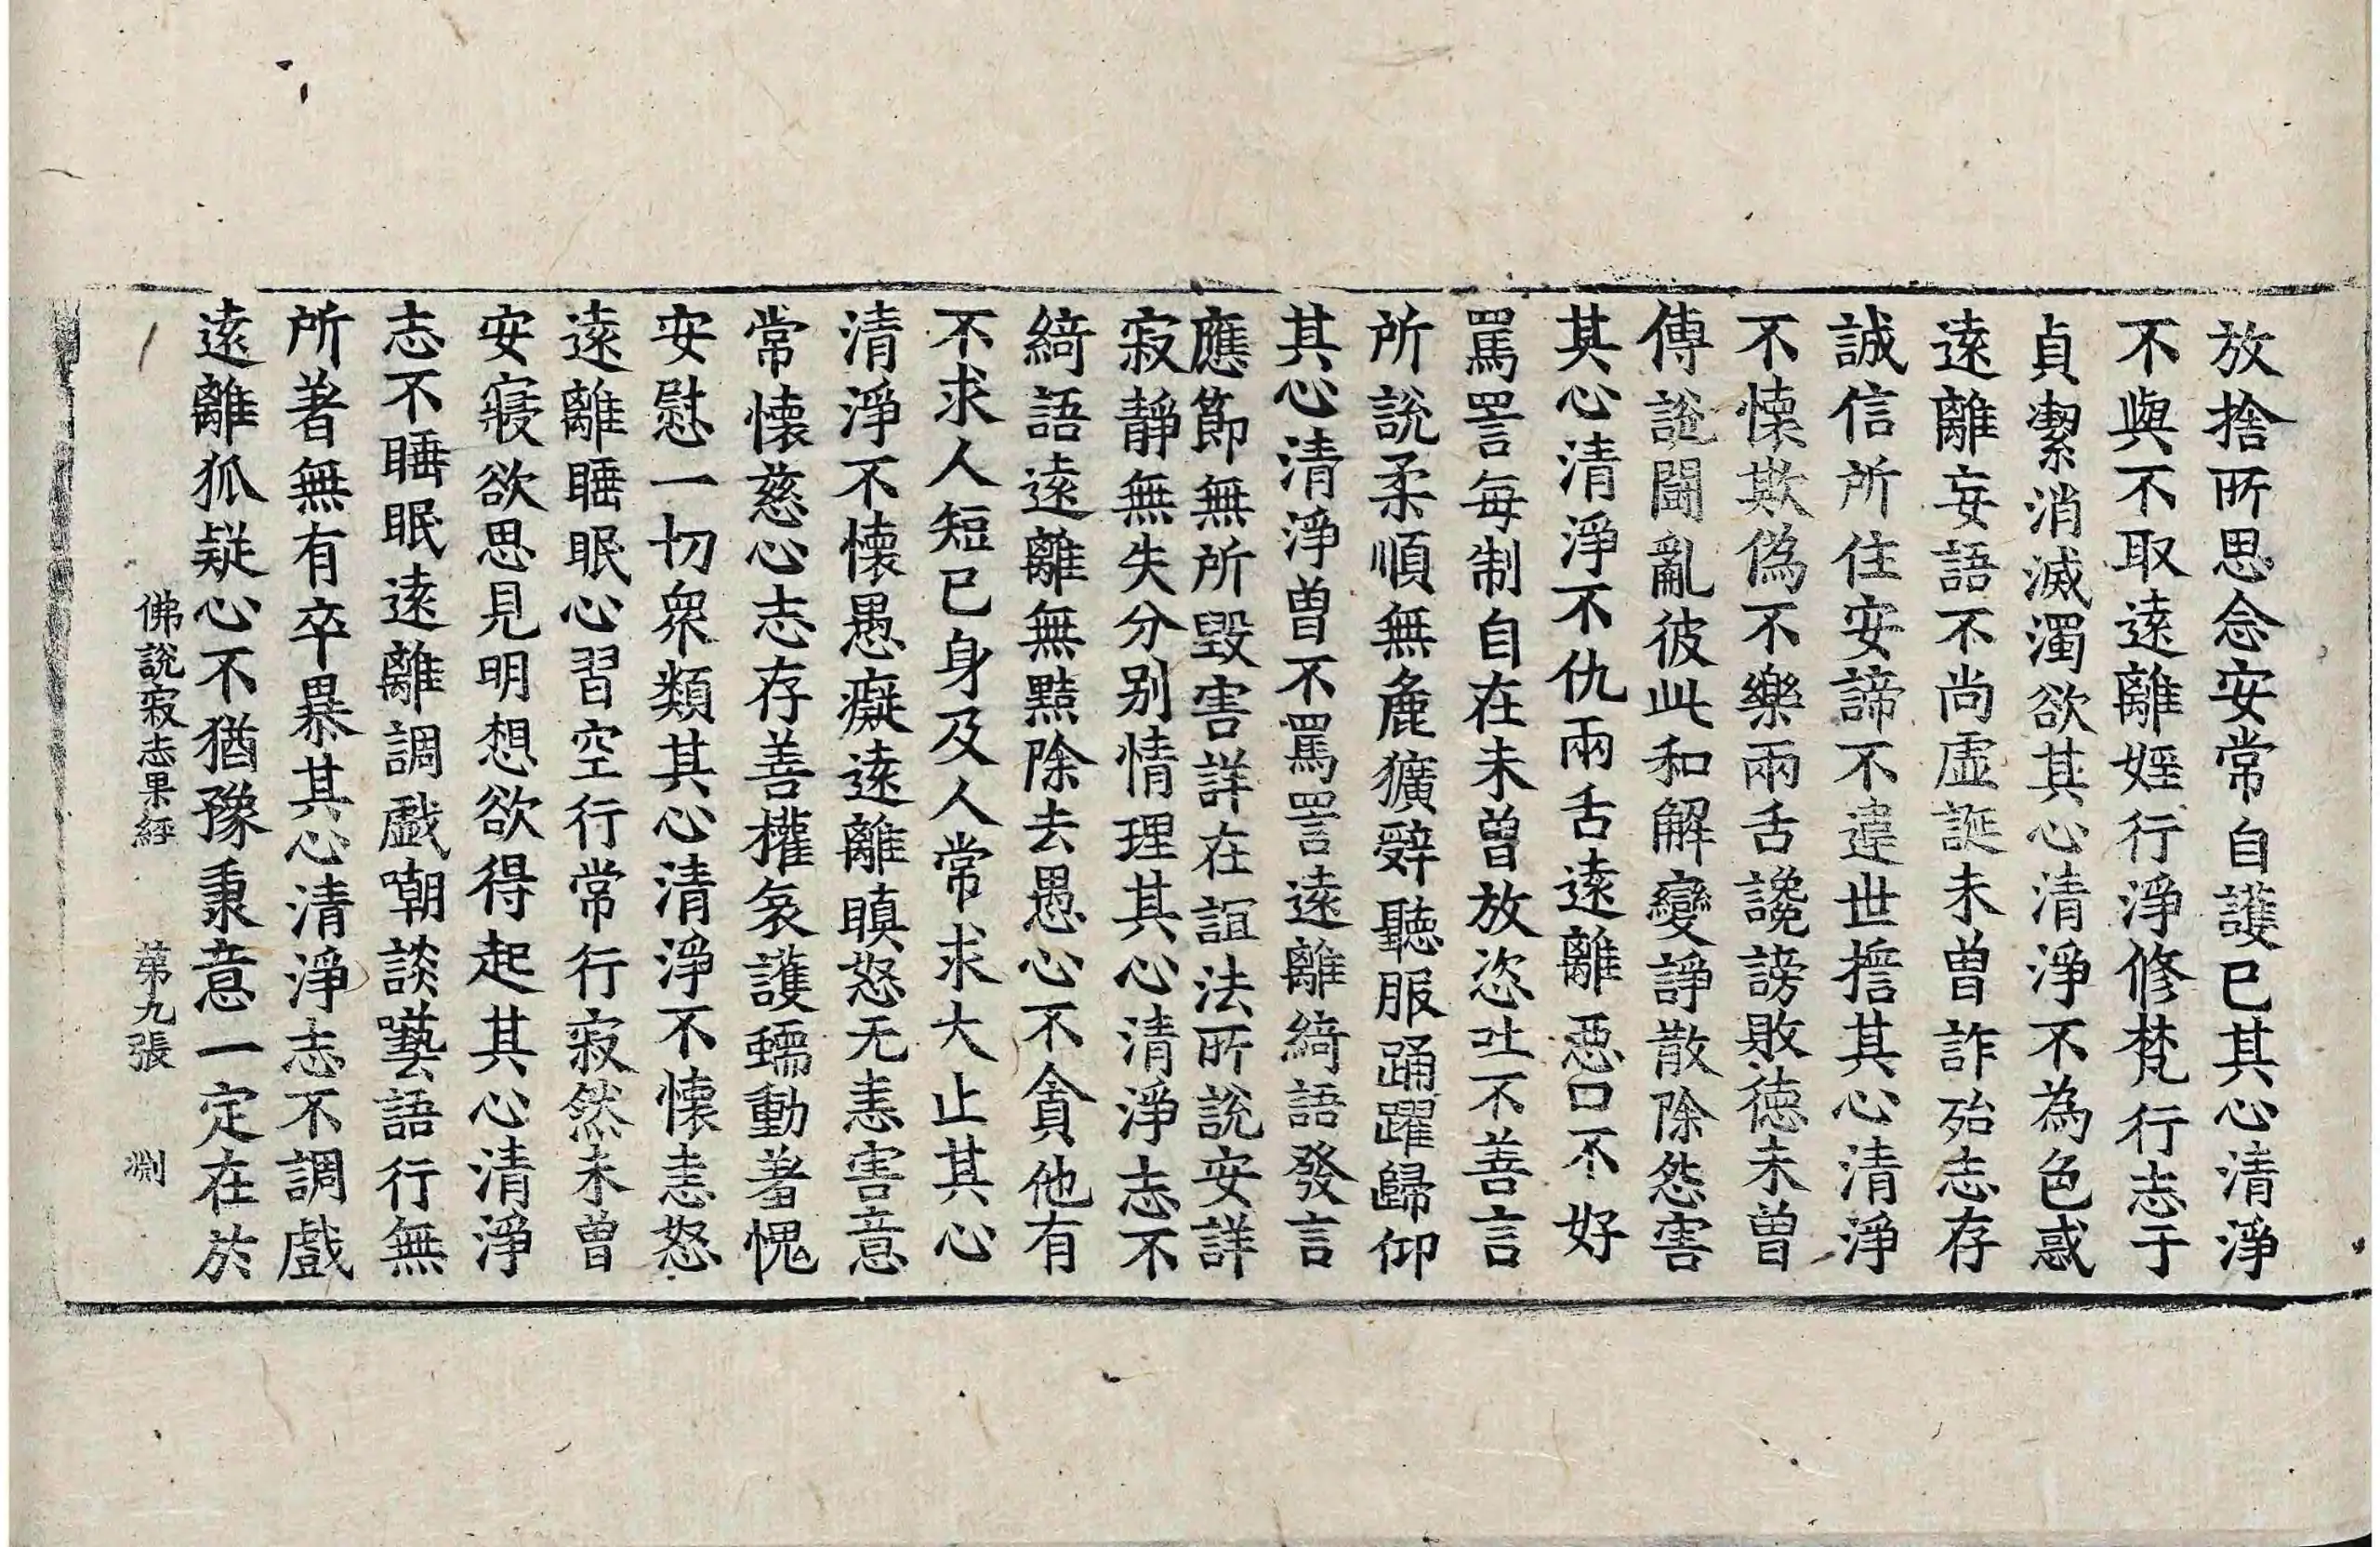 放捨所思念安常自護已其心清淨
不與不取遠離婬行淨修梵行志于
貞潔消滅濁欲其心清淨不為色惑
遠離妄語不尚虛誕未曾詐殆志存
誠信所住安諦不違世擔其心清淨
不懷欺偽不樂兩舌讒謗敗德未曾
傳說鬪亂彼此和解變諍散除怨害
其心清淨不仇兩舌遠離惡口不好
罵詈每制自在未曾放恣吐不善言
所說柔順無麁獷辭聽服踊躍歸仰
其心清淨曾不罵詈遠離綺語發言
應節無所毀害詳在誼法所說安詳
寂靜無失分別情理其心清淨志不
綺語遠離無黠除去愚心不貪他有
不求人短已身及人常求大止其心
清淨不懷愚癡遠離瞋怒无恚害意
常懷慈心志存善權哀護蠕動著愧
安慰一切眾類其心清淨不懷恚怒
遠離睡眠心習空行常行寂然未曾
安寢欲思見明想欲得起其心清淨
志不睡眠遠離調戲嘲談囈語行無
所著無有卒暴其心清淨志不調戲
遠離狐疑心不猶豫秉意一定在於
佛說寂志果經 第九張 淵